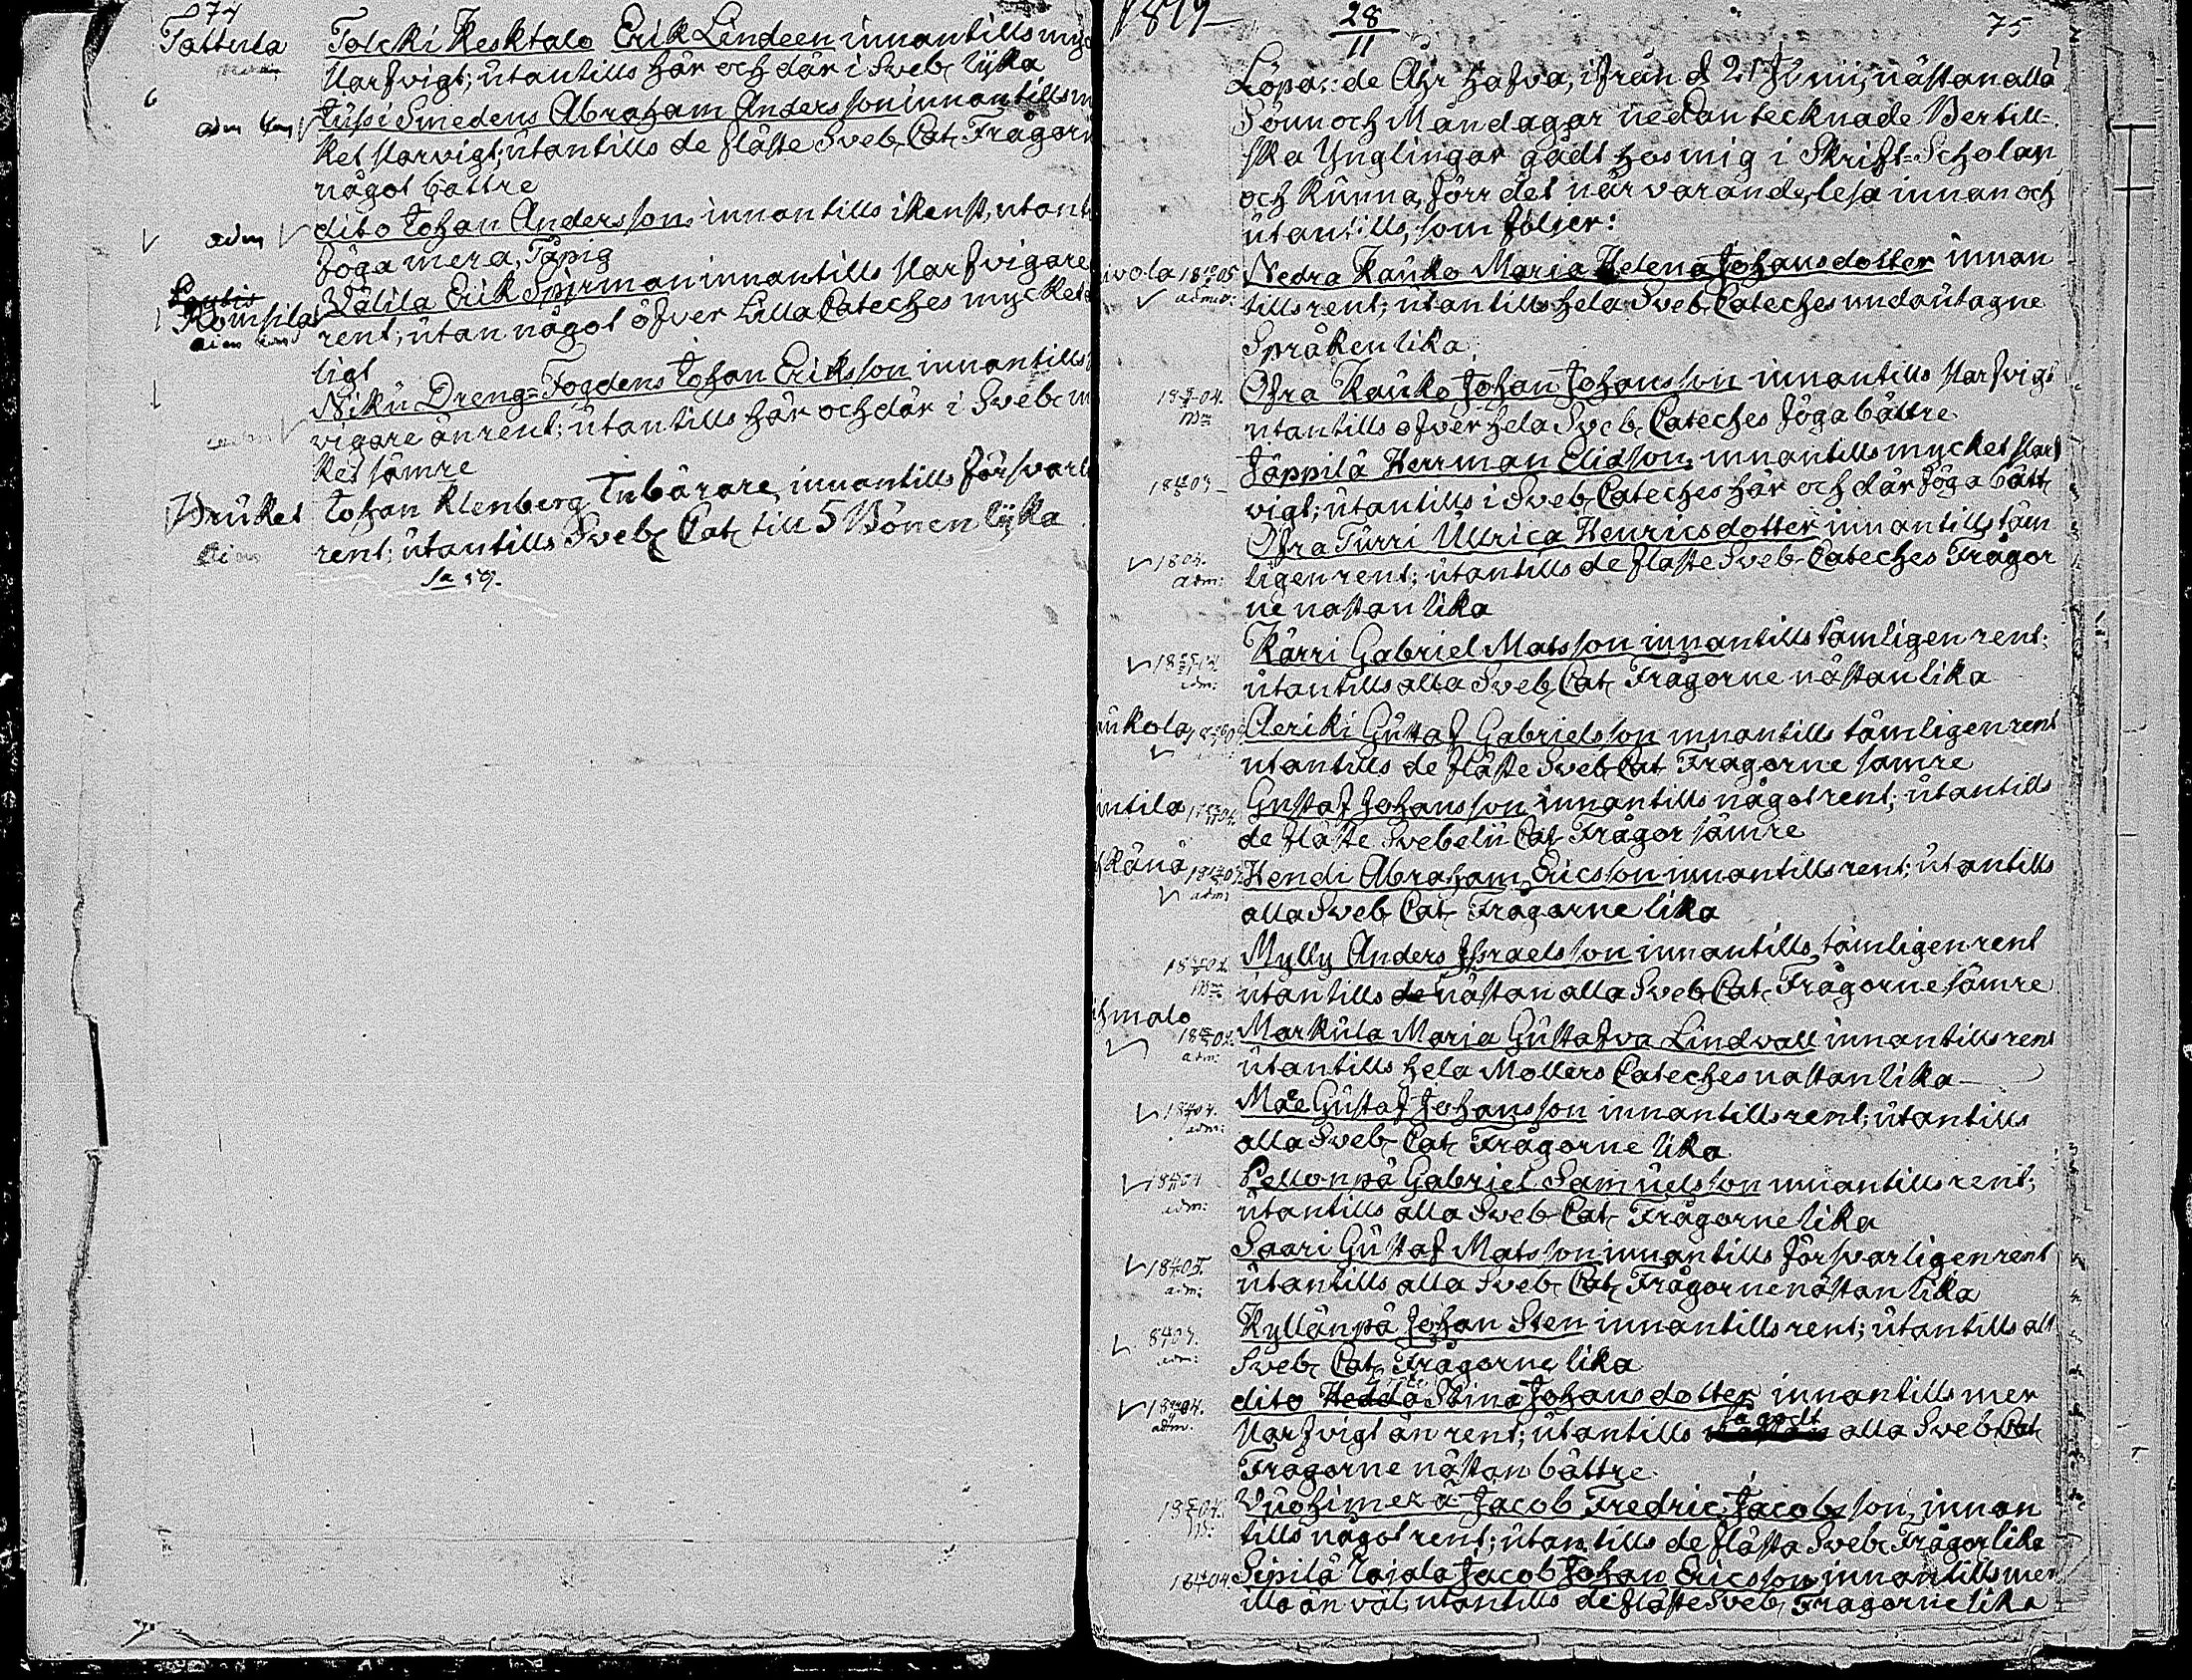 74
Tattula Tolcki Kesktalo Erik Lindeen innantills myc
slarfvigt; utantills här och där i Sveb. lÿka
Tussi Smedens Abraham Andersson innantills m
ket slarvigt; utantills de fläste Sveb. Cat. Frågorn
något bättre
adm dito Johan Andersson innantills ikenst, utant
föga mera, Tåpig
Römpilä Wälilä Erik Spirman innantills slarfvigare
rent; utan något öfver Lilla Cateches mycket
ligt
Niku Dreng-Fogdens Johan Eriksson innantills
vigare än rent; utantills här och där i Sveb. m
ket sämre
Bruket Johan Klenberg Inbärare, innantills försvarl
rent; utantills Sveb. Cat. till 5 Bönen lÿka
1819 28/11 75
Löpande Åhr hafva, ifrån d 21 Juni, nästan alla
Sönn och Måndagar nedantecknade Bertill-
ska Ynglingar gådt hos mig i Skrift-Scholan
och kunna, förr det närvarande, lesa innan och
utantills, som följer:
Nedra Kauko Maria Helena Johansdotter innan
adm: tills rent; utantills hela Sveb. Cateches undantagne
Språken lika
Öfra Kauko Johan Johansson innantills slarfvigt
utantills öfver hela Sveb. Cateches föga bättre
Jäppilä Herrman Eliasson innantills mycket slarf
vigt; utantills i Sveb. Cateches här och där föga bätt
Öfra Turri Ullrica Henricsdotter innantills täm
adm: ligen rent; utantills de fläste Sveb. Cateches Frågor
ne nästan lika
Kärri Gabriel Matsson innantills tämligen rent;
adm: utantills alla Sveb. Cat. Frågorne nästan lika
ukola Aeriki Gustaf Gabrielsson innantills tämligen rent
utantills de fläste Sveb. Cat. Frågorne sämre
ntila Gustaf Johansson innantills något rent; utantills
de fläste Svebelii Cat. Frågor sämre
känä Hendi Abraham Ericsson innantills rent; utantills
adm: alla Sveb. Cat. Frågorne lika
Mylly Anders Israelsson innantills tämligen rent
utantills de nästan alla Sveb. Cat. Frågorne sämre
hmalo
Markula Maria Gustafva Lindvall innantills rent
adm: utantills hela Möllers Cateches nästan lika
Mäe Gustaf Johansson innantills rent; utantills
adm: alla Sveb. Cat. Frågorne lika
Pellonpä Gabriel Samuelsson innantills rent;
adm: utantills alla Sveb. Cat. Frågorne lika
Saari Gustaf Matsson innantills försvarligen rent
adm: utantills alla Sveb. Cat. Frågorne nästan lika
Kyllänpä Johan Sten innantills rent; utantills all
adm: Sveb. Cat. Frågorne lika
dito Hedda Stina Johansdotter innantills mer
adm. slarfvigt än rent; utantills så godt alla Sveb. Cat.
Frågorne nästan bättre
Vuohimezä Jacob Fredric Jacobsson, innan
tills något rent; utantills de flästa Sveb. Frågor lika
Sipilä Lajala Jacob Johan Ericsson innantills mer
illa än väl, utantills de fläste Sveb. Frågorne lika